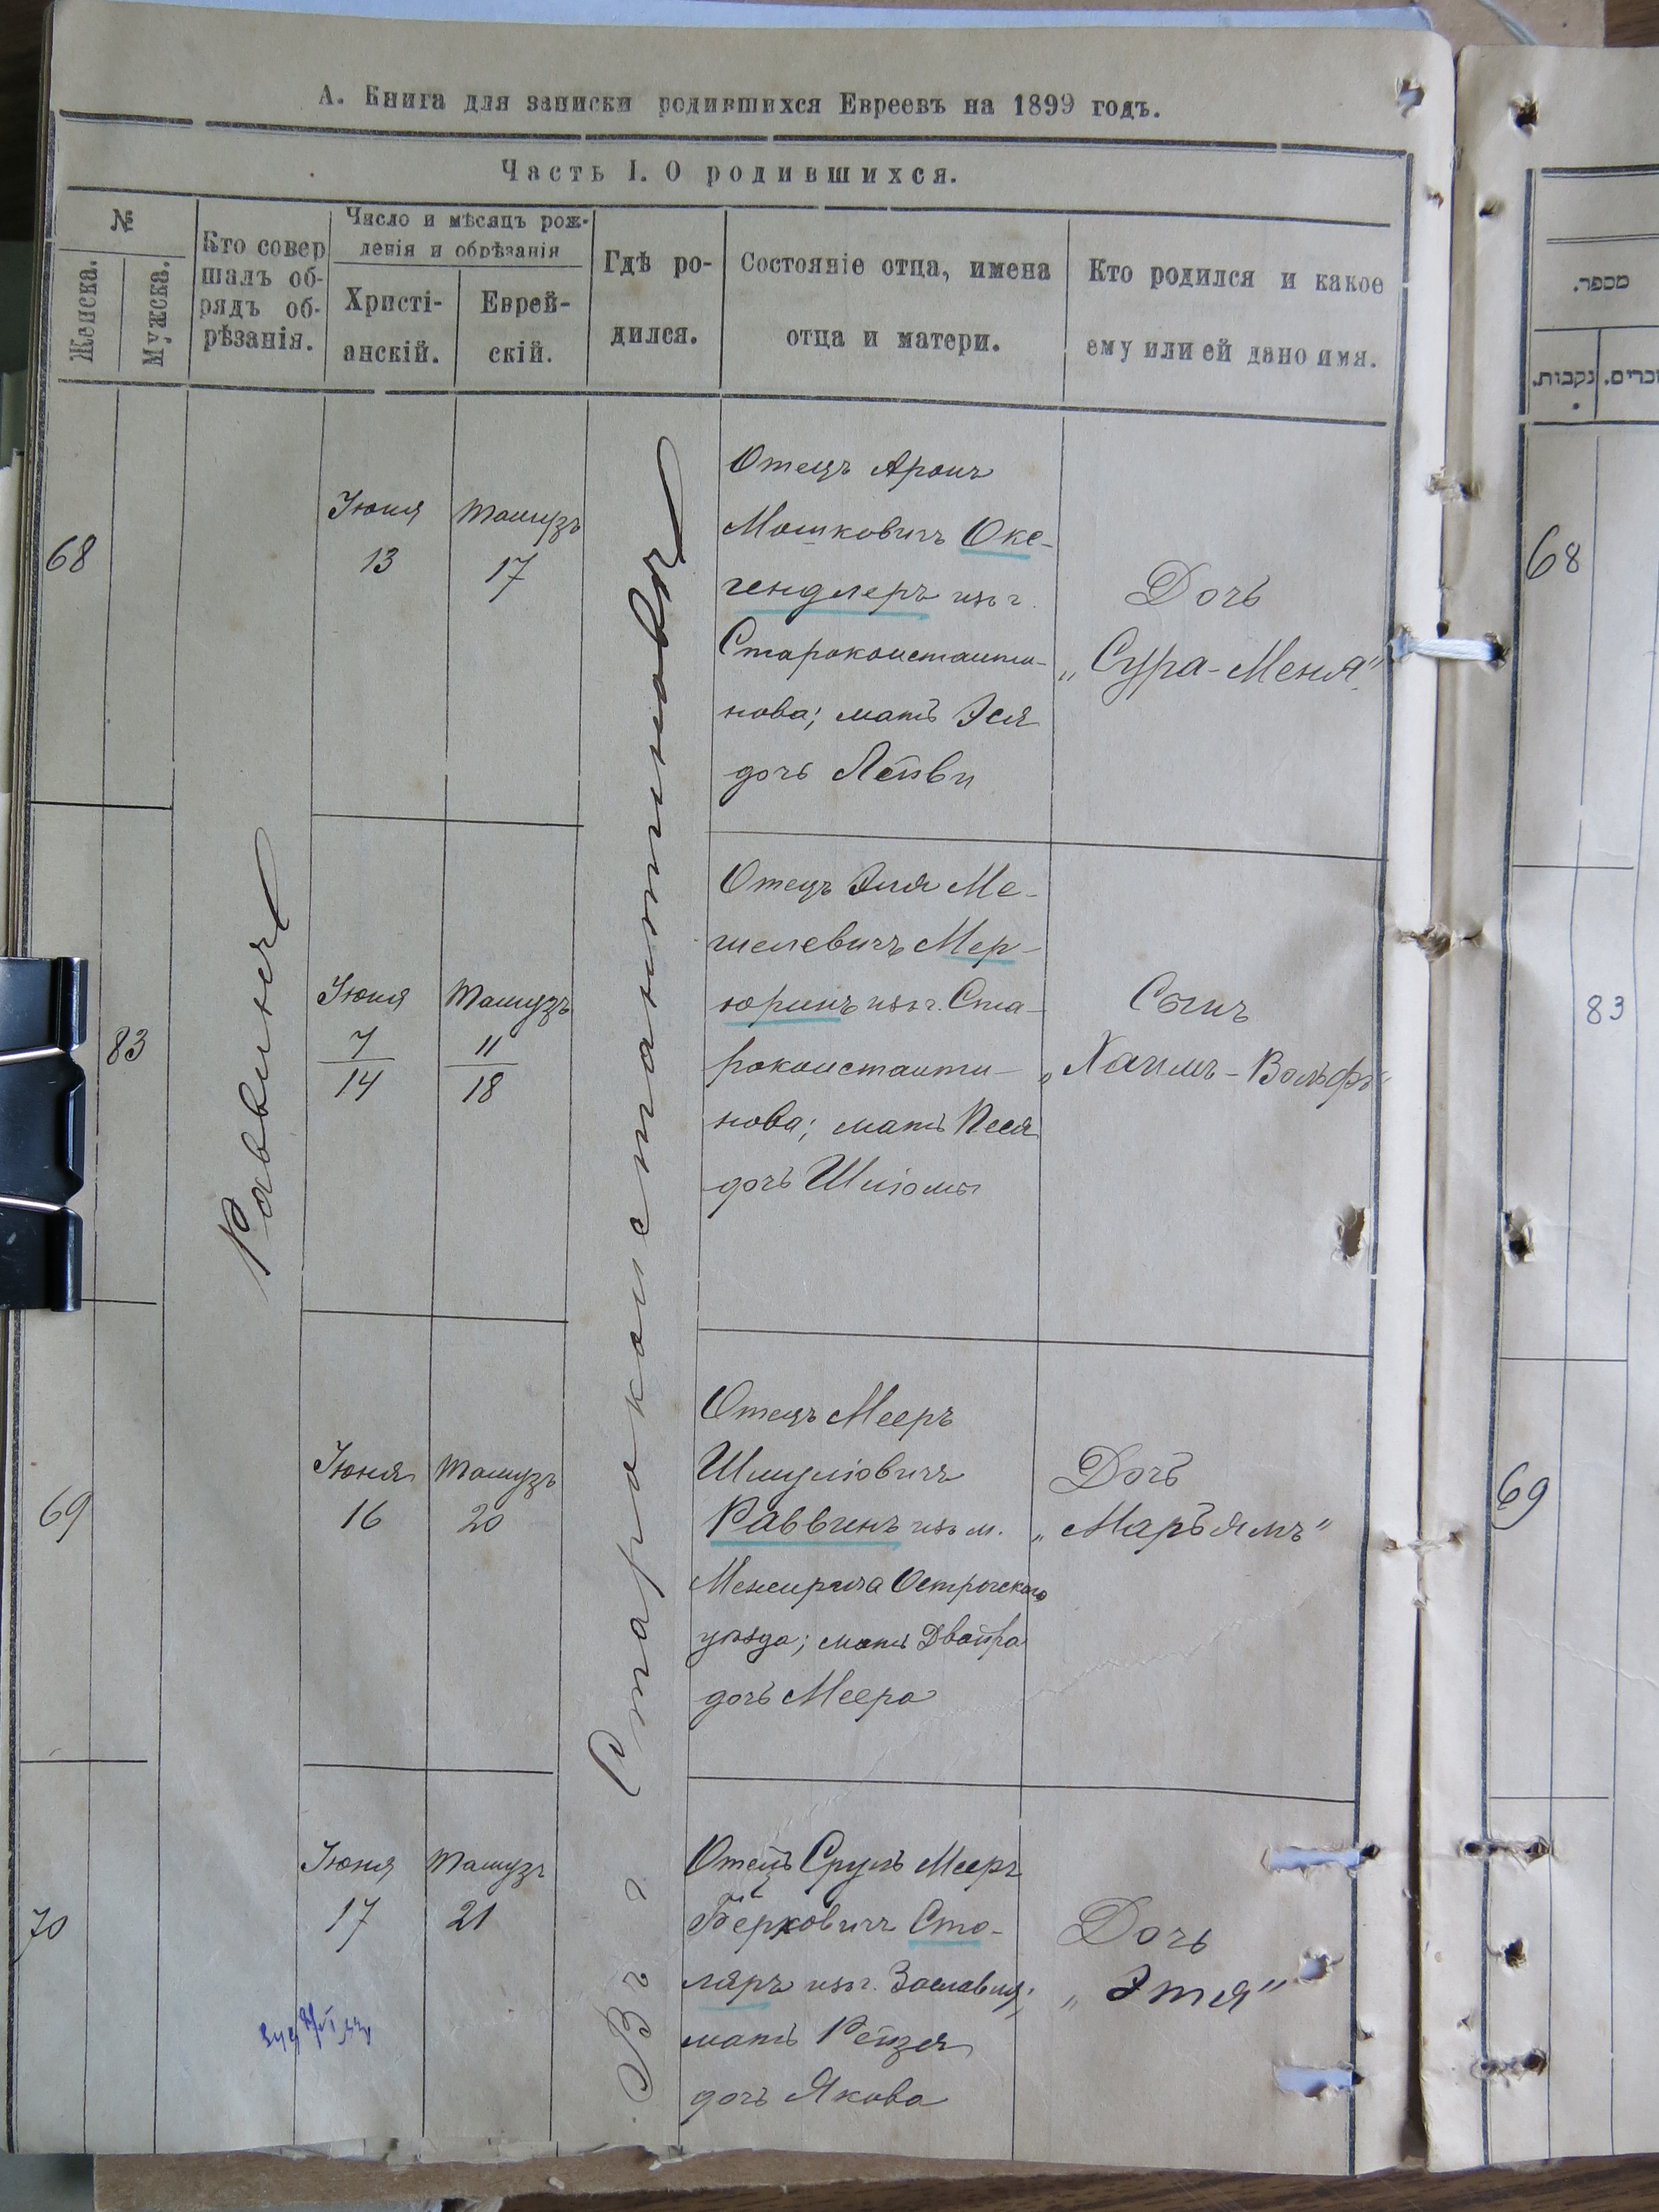 А. Книга для записки родившихся Евреевъ на 1899 годъ.
Часть I. О родившихся.
№
Женска.
Мужска.
Кто совер
шалъ об-
рядъ об-
рѣзанія.
Число и мѣсяцъ рож-
денія и обрѣзанія
Христі-
анскій.
Еврей-
скій.
Гдѣ ро-
дился.
Состояніе отца, имена
отца и матери.
Кто родился и какое
ему или ей дано имя.
Раввинъ
Въ г. Староконстантиновѣ
68
Іюня
13
Тамузъ
17
Отецъ Аронъ
Мошковичъ Окс-
гендлеръ изъ г.
Староконстанти-
нова; мать Эся
дочь Лейви
Дочь
„Сура-Меня"
83
Іюня
7
14
Тамузъ
11
18
Отецъ Эля Ме-
шелевичъ Мер-
юринъ изъ г. Ста-
роконстанти-
нова; мать Песя
дочь Шліомы
Сынъ
„Хаимъ-Вольфъ"
69
Іюня
16
Тамузъ
20
Отецъ Мееръ
Шмуліовичъ
Раввинъ изъ м.
Межирича Острогского
уѣзда; мать Двойра
дочь Меера
Дочь
„Марьямъ"
70
Іюня
17
Тамузъ
21
Отецъ Сруль Мееръ
Берковичъ Сто-
ляръ изъ г. Заславля;
мать Рейзя
дочь Якова
Дочь
„Этя"
מספר.
נקבות.
זכרים.
68
83
69